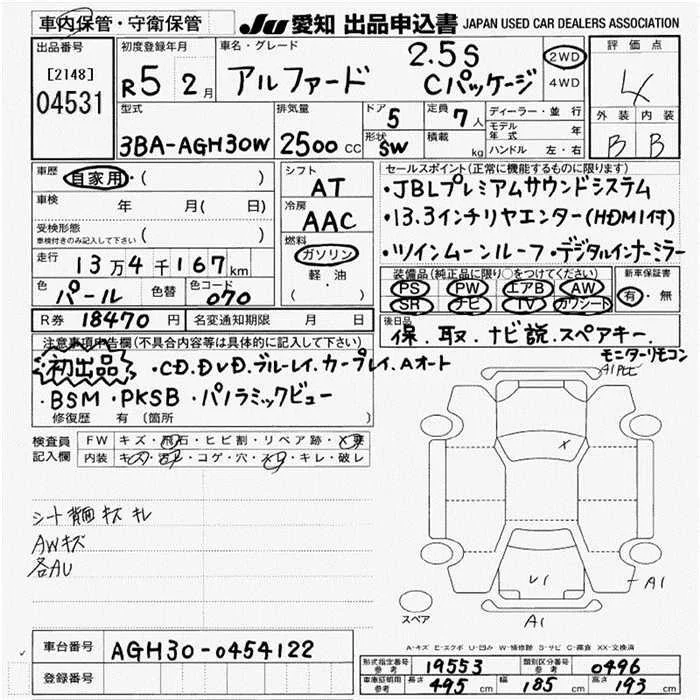 車内保管・守衛保管 JU 愛知 出品申込書 JAPAN USED CAR DEALERS ASSOCIATION
出品番号 [2148] 04531
初度登録年月 R5 2月
車名・グレード アルファード 2.5S Cパッケージ
2WD 4WD
評価点 4
外装 内装
B B
型式 3BA-AGH30W
排気量 2500 cc
ドア 5 形状 SW
定員 7人 積載 kg
ディーラー・並行
モデル年式 年
ハンドル 左・右
車歴 自家用・( )
車検 年 月( 日)
受検形態 車検付きのみ記入して下さい ( )
走行 13万4千167km
色 パール 色替 色コード 070
シフト AT
冷房 AAC
燃料 ガソリン 軽油 ( )
セールスポイント(正常に機能するものに限ります)
・JBLプレミアムサウンドシステム
・13.3インチリヤエンター(HDMI付)
・ツインムーンルーフ・デジタルインナーミラー
装備品(純正品に限り○をつけてください)
PS PW エアB AW
SR ナビ TV カワシート
新車保証書 有・無
R券 18470円 名変通知期限 月 日
後日品 保.取.ナビ説.スペアキー.
モニターリモコン
注意事項申告欄(不具合内容等は具体的に記入して下さい)
初出品 ・CD.DVD.ブルーレイ.カープレイ.Aオート
・BSM・PKSB・パノラミックビュー
修復歴 有 (箇所 )
検査員記入欄
FW キズ・飛石・ヒビ割・リペア跡・X要
内装 キズ・汚レ・コゲ・穴・スレ・キレ・破レ
シート背面キズ キレ
AWキズ
各AU
X
V1
A1
A1
スペア
A-キズ E-エクボ U-凹み W-補修跡 S-サビ C-腐食 XX-交換済
車台番号 AGH30-0454122
登録番号
形式指定番号 参考 19553 類別区分番号 参考 0496
車庫証明用 参考 長さ 495 cm 幅 185 cm 高さ 193 cm